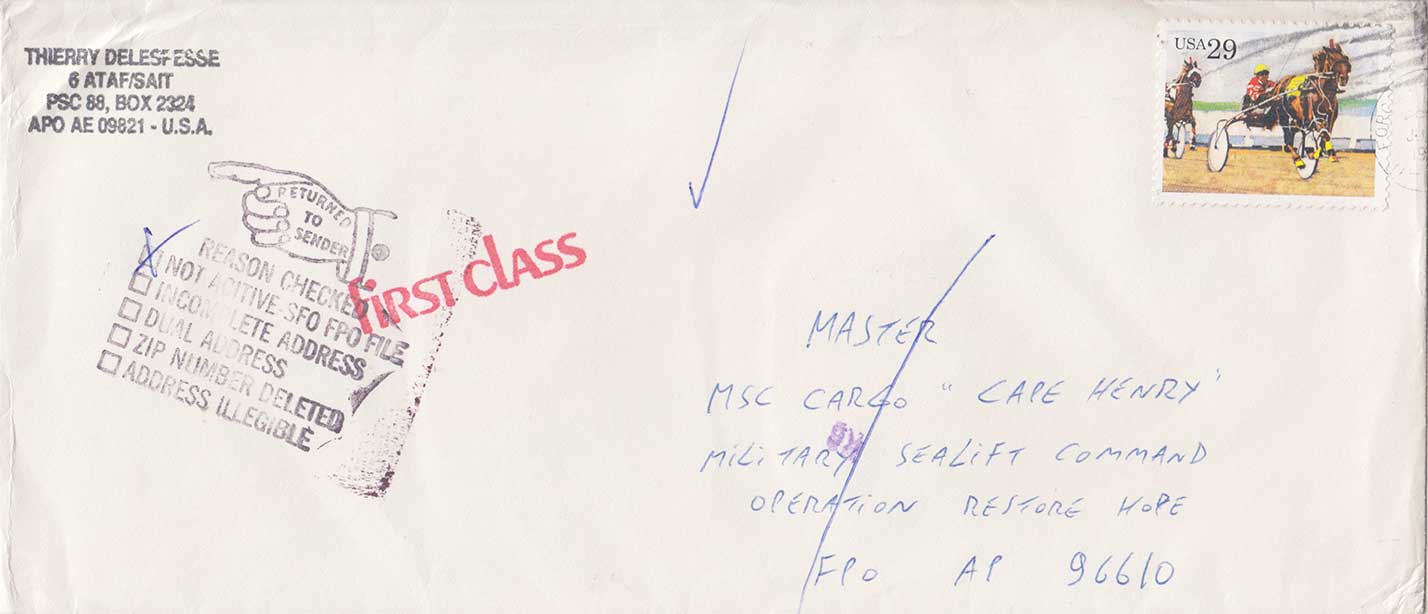 THIERRY DELESFESSE
6 ATAF/SAIT
PSC 88, BOX 2324
APO AE 09821 - U.S.A.
USA 29
RETURNED
TO
SENDER
REASON CHECKED
NOT ACITIVE-SFO FPO FILE
INCOMPLETE ADDRESS
DUAL ADDRESS
ZIP NUMBER DELETED
ADDRESS ILLEGIBLE
FIRST CLASS
MASTER
MSC CARGO "CAPE HENRY"
MILITARY SEALIFT COMMAND
OPERATION RESTORE HOPE
FPO AP 96610